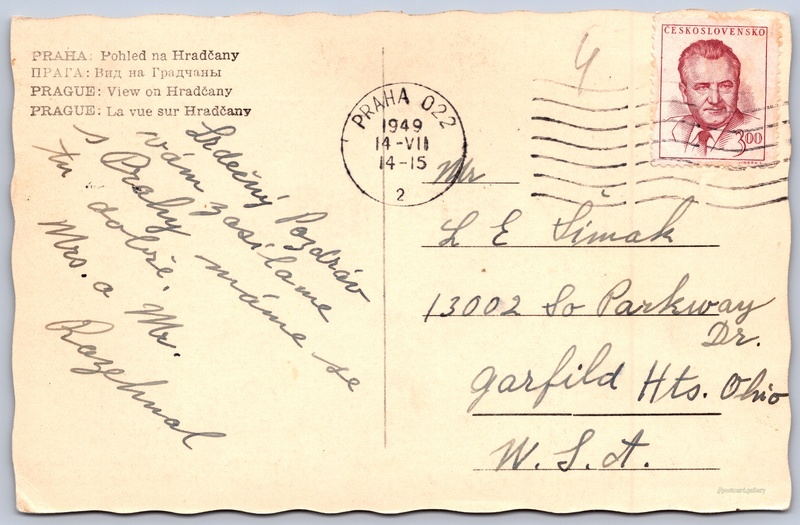 PRAHA: Pohled na Hradčany
ПРАГА: Вид на Градчаны
PRAGUE: View on Hradčany
PRAGUE: La vue sur Hradčany
Srdečný Pozdrav
vám zasílame
s Prahy máme se
tu dobře.
Mrs. a Mr.
Razehnal
PRAHA 022
1949
14-VII
14-15
2
ČESKOSLOVENSKO
3.00
4
Mr
L E Šimak
13002 So Parkway
Dr.
Garfild Hts. Ohio
U.S.A.